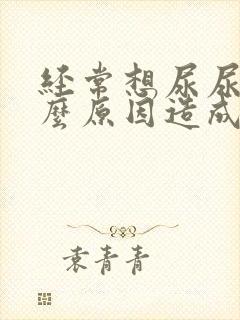 经常想尿尿
麼原因造成
袁青青